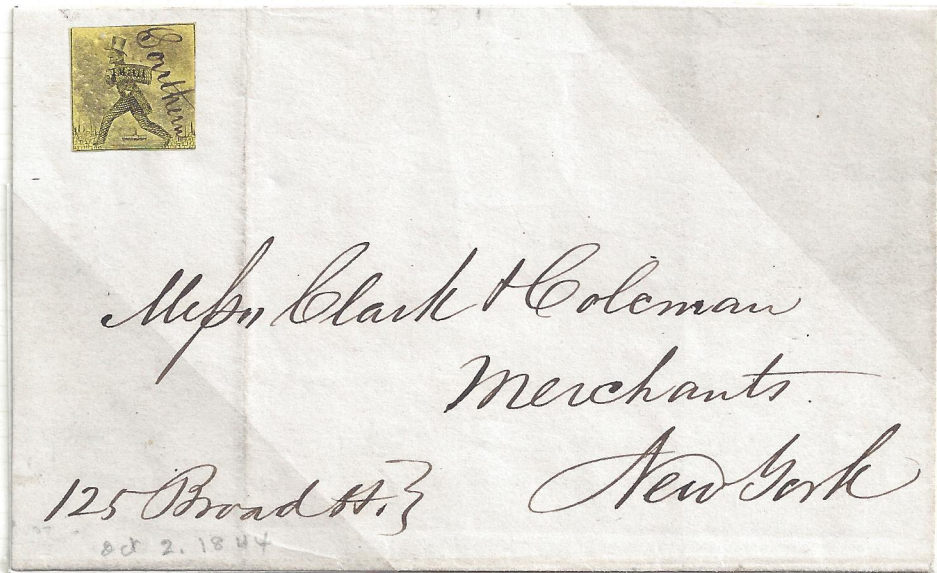 Southern
Messrs Clark & Coleman
Merchants
New York
125 Broad St.
Oct 2. 1844